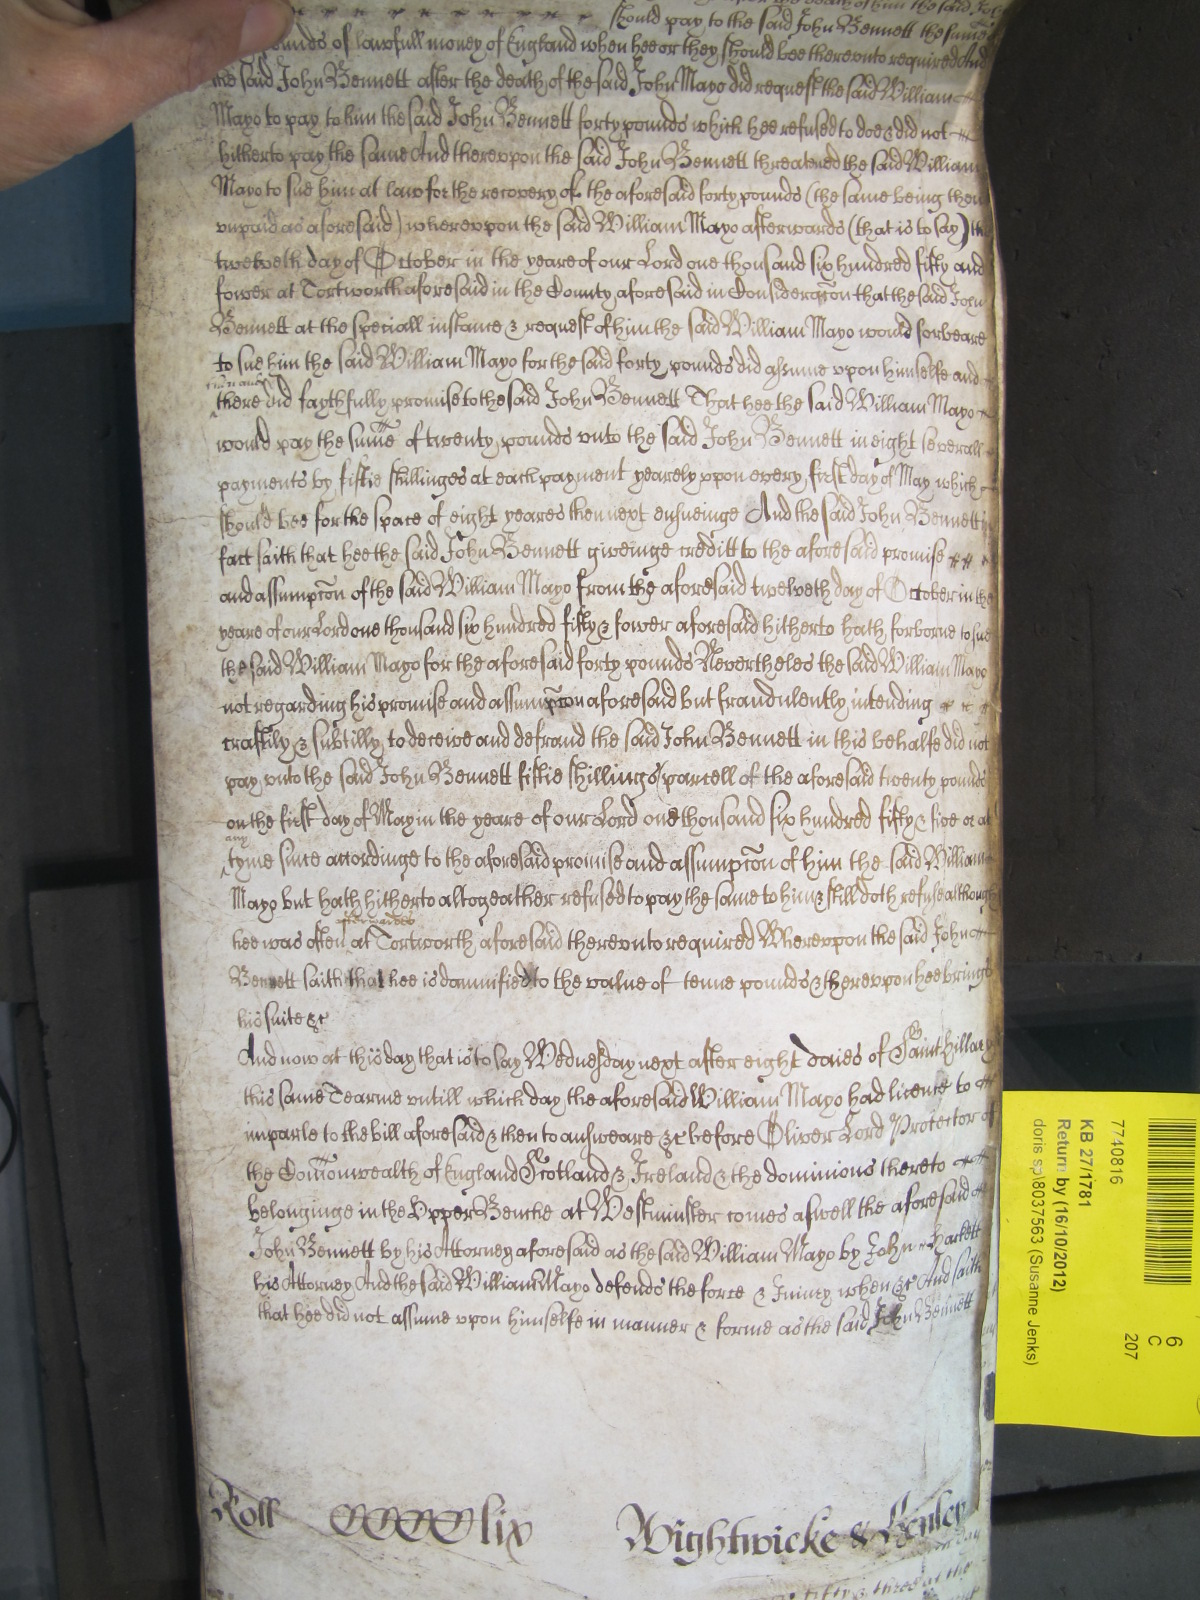 of him the said
should pay to the said John Bennett the summe
pounds of lawfull money of England when hee or they should bee therevnto required And
the said John Bennett after the death of the said John Mayo did request the said William
Mayo to pay to him the said John Bennett forty pounds which hee refused to doe & did not
hitherto pay the same And therevpon the said John Bennett threatned the said William
Mayo to sue him at law for the recovery of the aforesaid forty pounds (the same being then
vnpaid as aforesaid) wherevpon the said William Mayo afterwards (that is to say) the
twelveth day of October in the yeare of our Lord one thousand six hundred fifty and
fower at Tortworth aforesaid in the County aforesaid in Consideracon that the said John
Bennett at the speciall instance & request of him the said William Mayo would forbeare
to sue him the said William Mayo for the said forty pounds did assume vpon himselfe and
there did faythfully promise to the said John Bennett That hee the said William Mayo
would pay the sume of twenty pounds vnto the said John Bennett in eight severall
payments by fiftie shillinges at each payment yearely vpon every first day of May which
should bee for the space of eight yeares then next ensueinge And the said John Bennett in
fact saith that hee the said John Bennett giveinge creditt to the aforesaid promise
and assumpcon of the said William Mayo from the aforesaid twelveth day of October in the
yeare of our Lord one thousand six hundred fifty & fower aforesaid hitherto hath forborne to sue
the said William Mayo for the aforesaid forty pounds Nevertheles the said William Mayo
not regarding his promise and assumpcon aforesaid but fraudulently intending
craftily & subtilly to deceive and defraud the said John Bennett in this behalfe did not
pay vnto the said John Bennett fiftie shillings parcell of the aforesaid twenty pounds
on the first day of May in the yeare of our Lord one thousand six hundred fifty & five or at
any
tyme since accordinge to the aforesaid promise and assumpcon of him the said William
Mayo but hath hitherto altogeather refused to pay the same to him & still doth refuse although
afterwards
hee was often at Tortworth aforesaid therevnto required Wherevpon the said John
Bennett saith that hee is damnified to the value of tenne pounds & therevpon hee brings
his suite &c
And now at this day that is to say Wednesday next after eight daies of Saint Hillary
this same Tearme vntill which day the aforesaid William Mayo had licence to
imparle to the bill aforesaid & then to answeare &c before Oliver Lord Protector of
the Comonwealth of England Scotland & Ireland & the dominions thereto
belonginge in the Vpper Benche at Westminster comes aswell the aforesaid
John Bennett by his Attorney aforesaid as the said William Mayo by John Hackett
his Attorney And the said William Mayo defends the force & Iniury when &c And saith
that hee did not assume vpon himselfe in manner & forme as the said John Bennett
Roll CCCClix Wightwicke & Henley
fifty & three at the
7740816
KB 27/1781
Return by (16/10/2012)
doris sp\8037563 (Susanne Jenks)
6
C
207